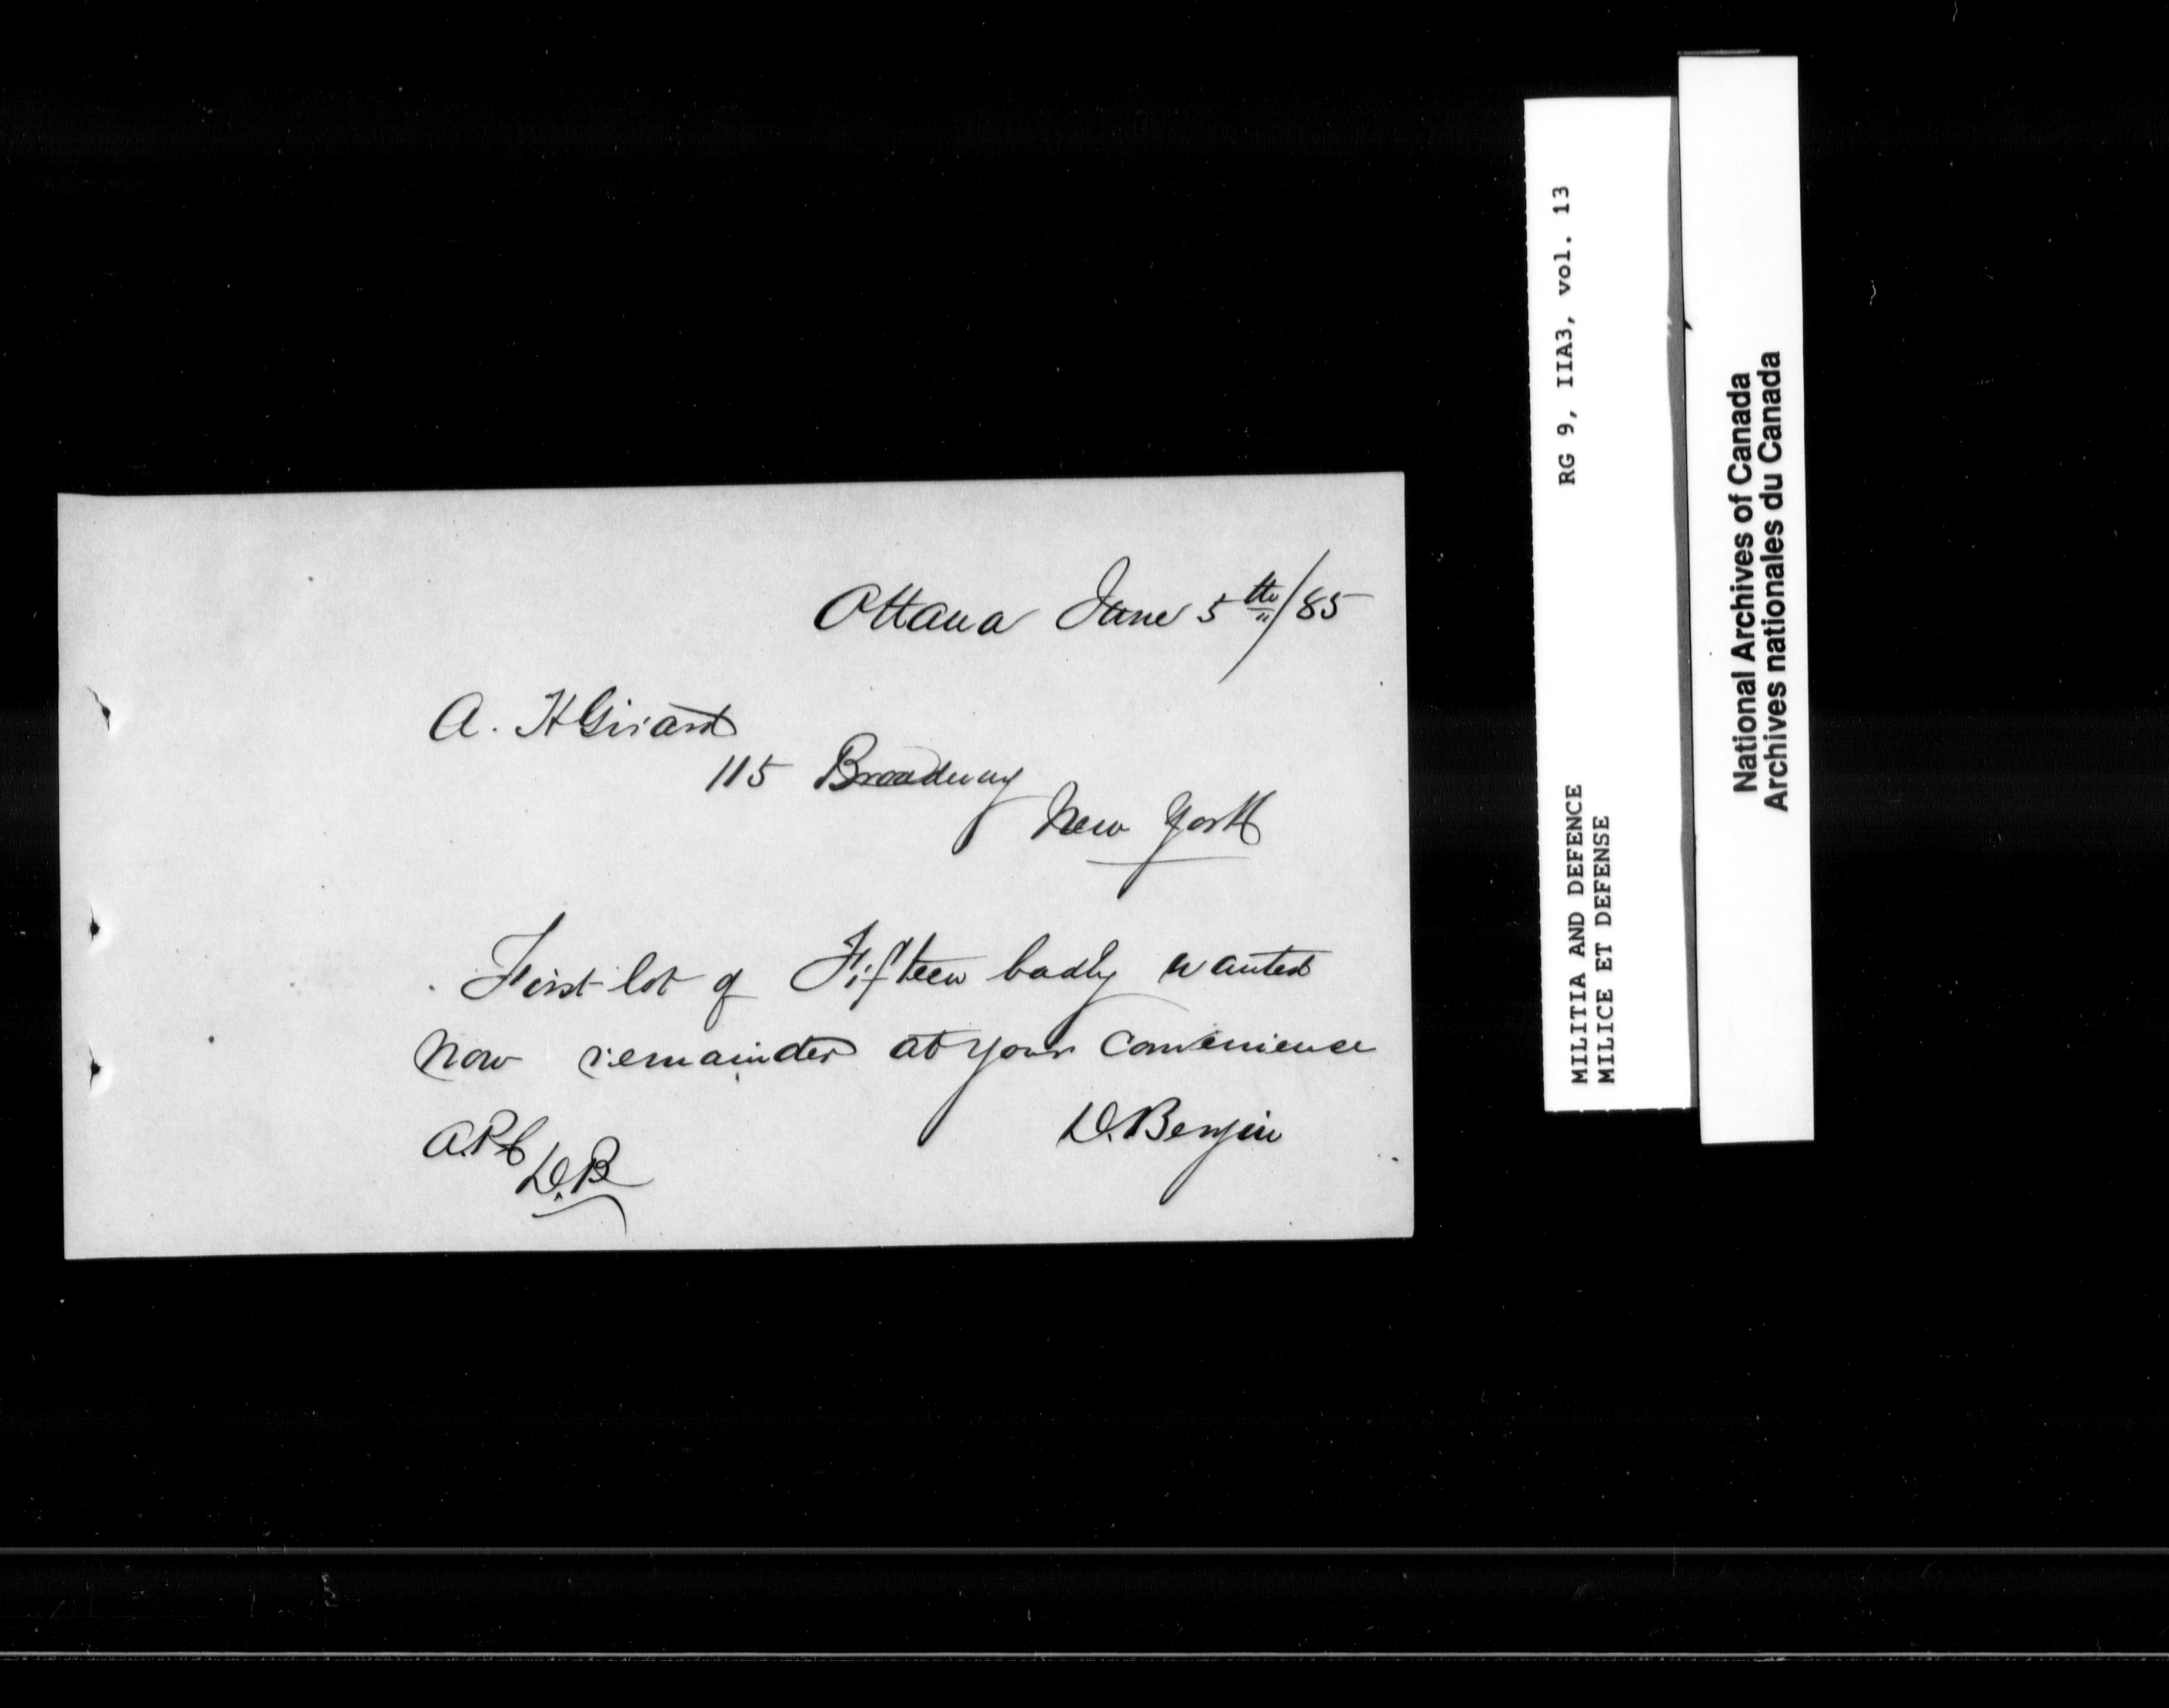 Ottawa June 5th/85
A. H Girard
115 Broadway
New York
First lot of Fifteen badly wanted
now remainder at your convenience
D. Bergin
A.P.C
D.B
MILITIA AND DEFENCE RG 9, IIA3, vol. 13
MILICE ET DEFENSE
National Archives of Canada
Archives nationales du Canada